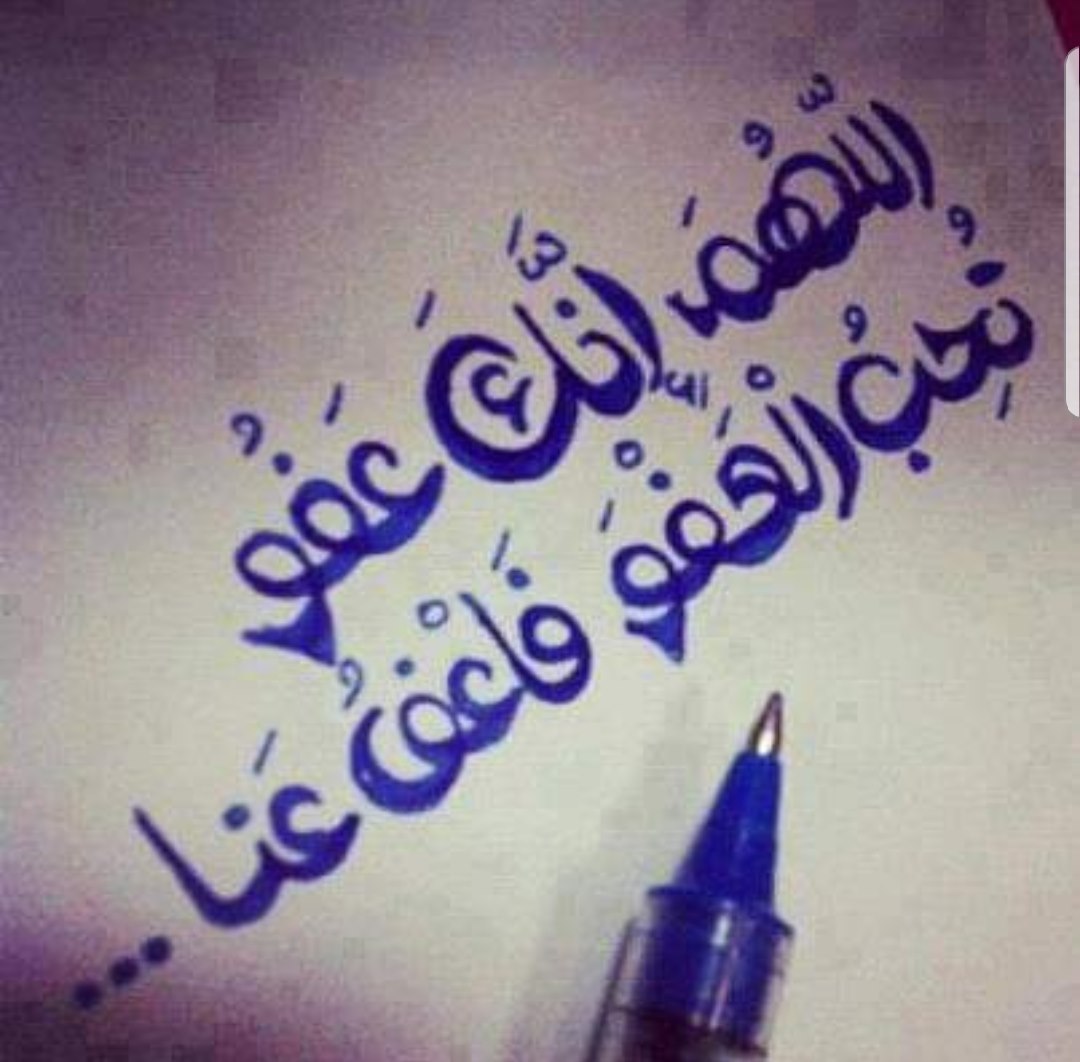 اللّهُمَّ انَّكَ عَفُو
نُحِبُ الْعَفْوَ
فَاعْفُ عَنا...